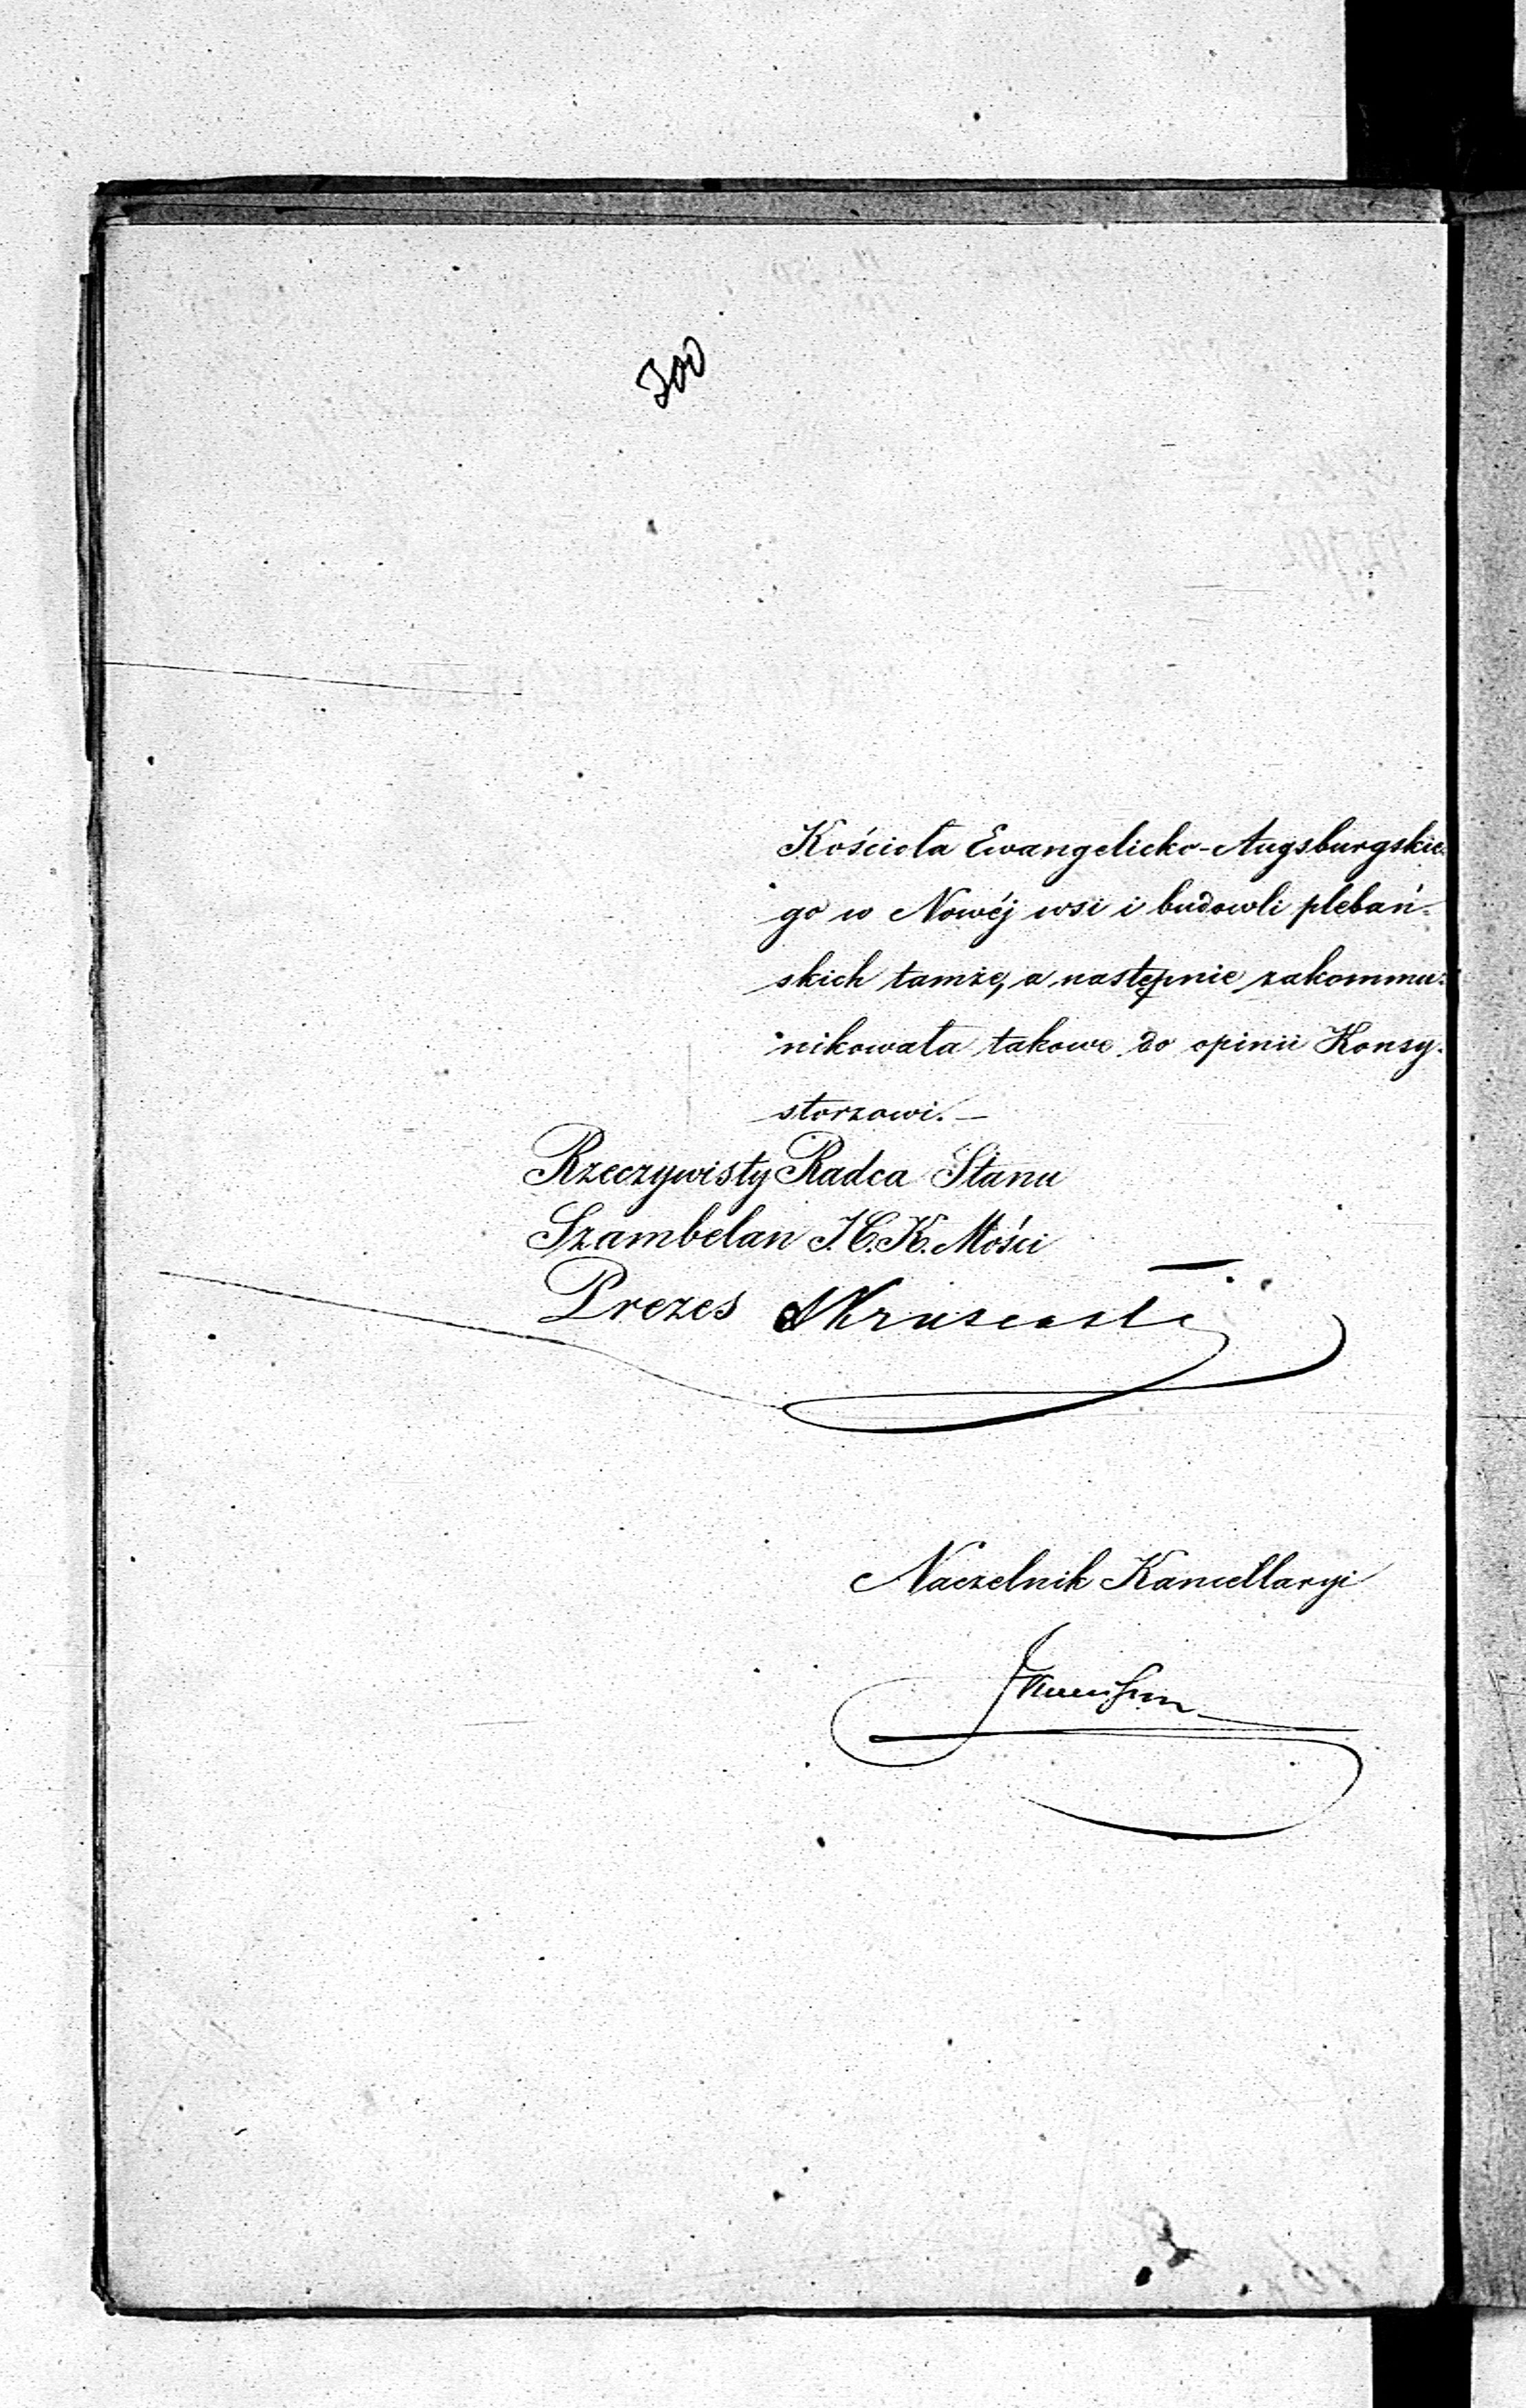 300
Kościoła Ewangelicko-Augsburgskie-
go w Nowéj wsi i budowli plebań-
skich tamże, a następnie zakommu-
nikowała takowe do opinii Konsy-
storzowi.—
Rzeczywisty Radca Stanu
Szambelan J.C.K. Mości
Prezes
Naczelnik Kancellaryi